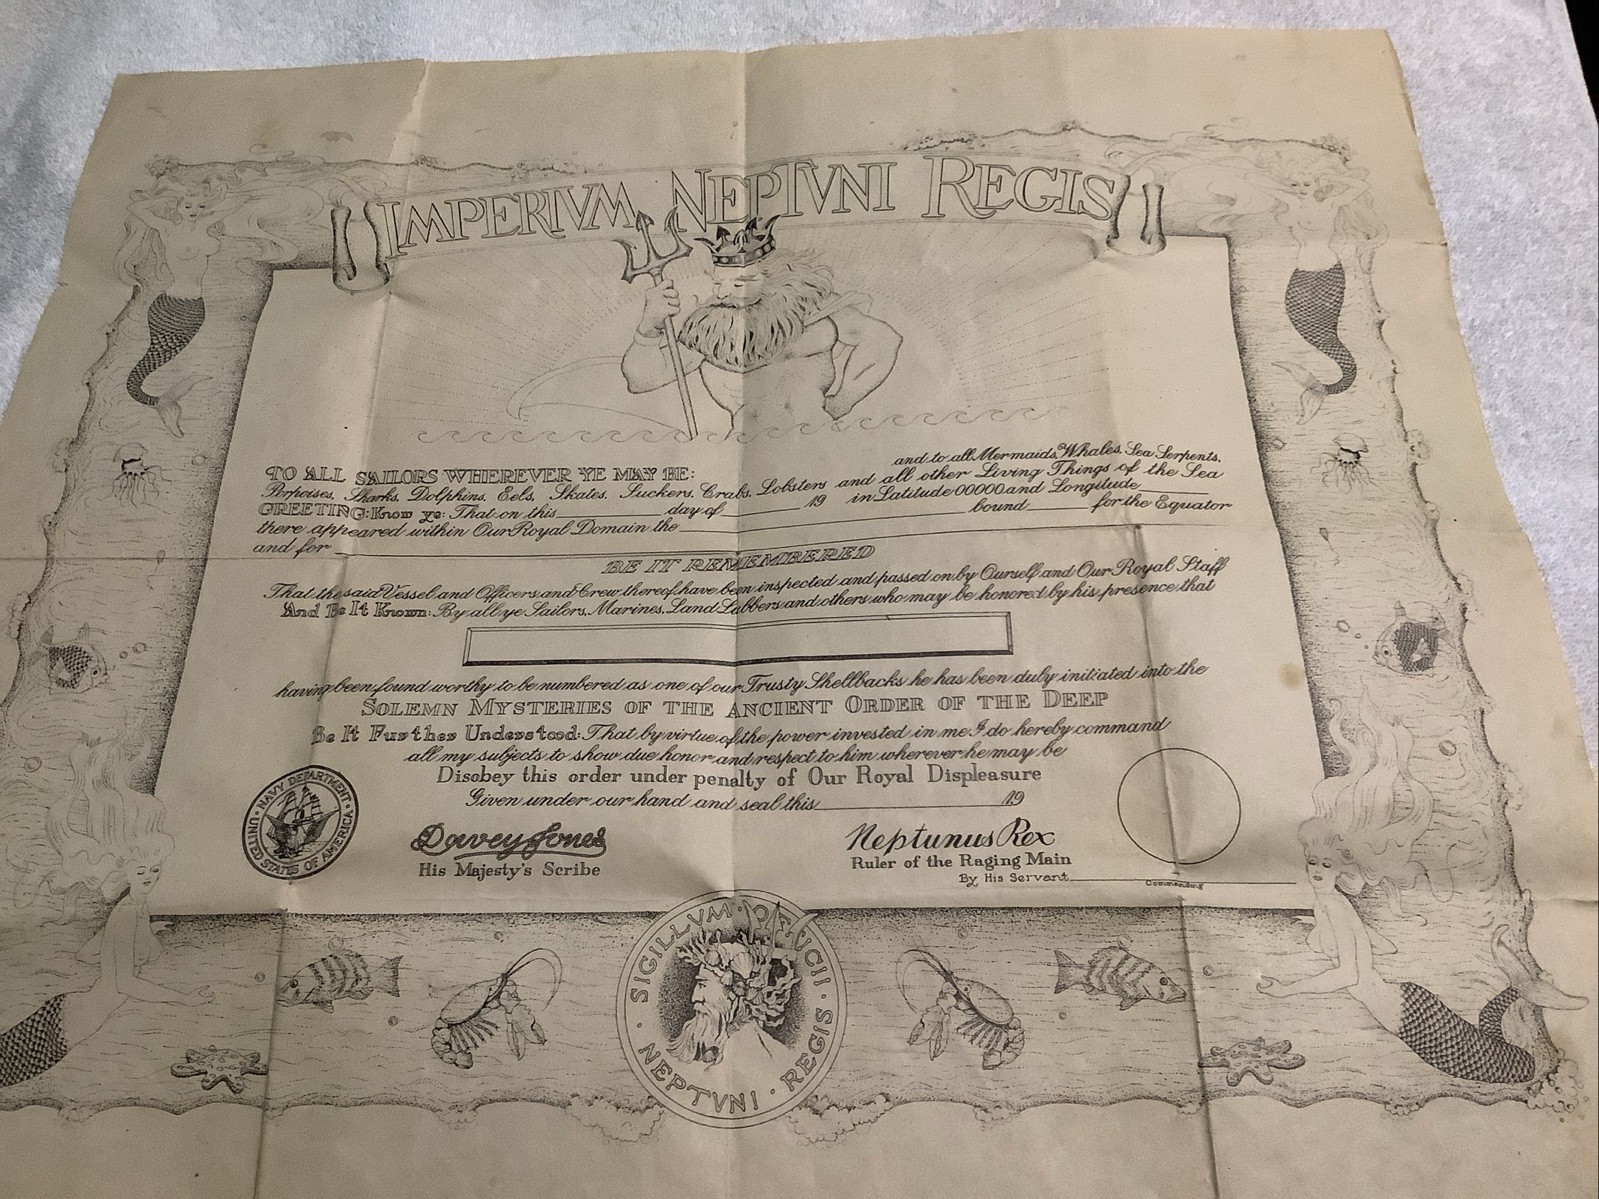 IMPERIVM NEPTVNI REGIS
TO ALL SAILORS WHEREVER YE MAY BE: and to all Mermaids, Whales, Sea Serpents,
Porpoises, Sharks, Dolphins, Eels, Skates, Suckers, Crabs, Lobsters and all other Living Things of the Sea
GREETING: Know ye: That on this day of 19 in Latitude 00000 and Longitude
there appeared within Our Royal Domain the bound for the Equator
and for
BE IT REMEMBERED
That the said Vessel and Officers and Crew thereof have been inspected and passed on by Ourself and Our Royal Staff
And Be It Known: By all ye Sailors, Marines, Land Lubbers and others who may be honored by his presence that
having been found worthy to be numbered as one of our Trusty Shellbacks he has been duly initiated into the
SOLEMN MYSTERIES OF THE ANCIENT ORDER OF THE DEEP
Be It Further Understood: That by virtue of the power invested in me I do hereby command
all my subjects to show due honor and respect to him wherever he may be
Disobey this order under penalty of Our Royal Displeasure
Given under our hand and seal this 19
NAVY DEPARTMENT
UNITED STATES OF AMERICA
Davey Jones
His Majesty's Scribe
Neptunus Rex
Ruler of the Raging Main
By His Servant
Commanding
SIGILLVM
NEPTVNI REGIS